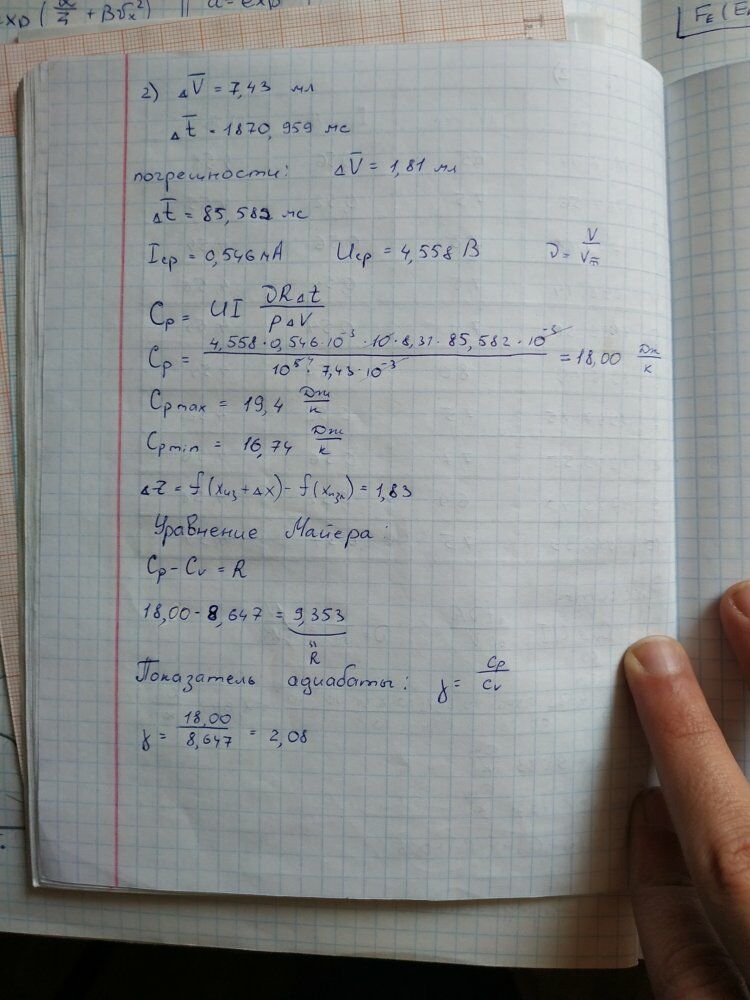 xp (α/4 + Bυₓ²) || a = exp
F_E (E
2) ΔV̅ = 7,43 мл
Δt̅ = 1870,959 мс
погрешности: ΔV̅ = 1,81 мл
Δt̅ = 85,582 мс
Iср = 0,546 мА Uср = 4,558 В ν = V/Vm
Cp = UI νRΔt/pΔV
Cp = 4,558·0,546·10⁻³·10·8,31·85,582·10⁻³ / 10⁵·7,43·10⁻³ = 18,00 Дж/К
Cp max = 19,4 Дж/К
Cp min = 16,74 Дж/К
Δz = f(xиз + Δx) - f(xизм) = 1,83
Уравнение Майера:
Cp - Cv = R
18,00 - 8,647 = 9,353
"
R
Показатель адиабаты: γ = Cp/Cv
γ = 18,00/8,647 = 2,08